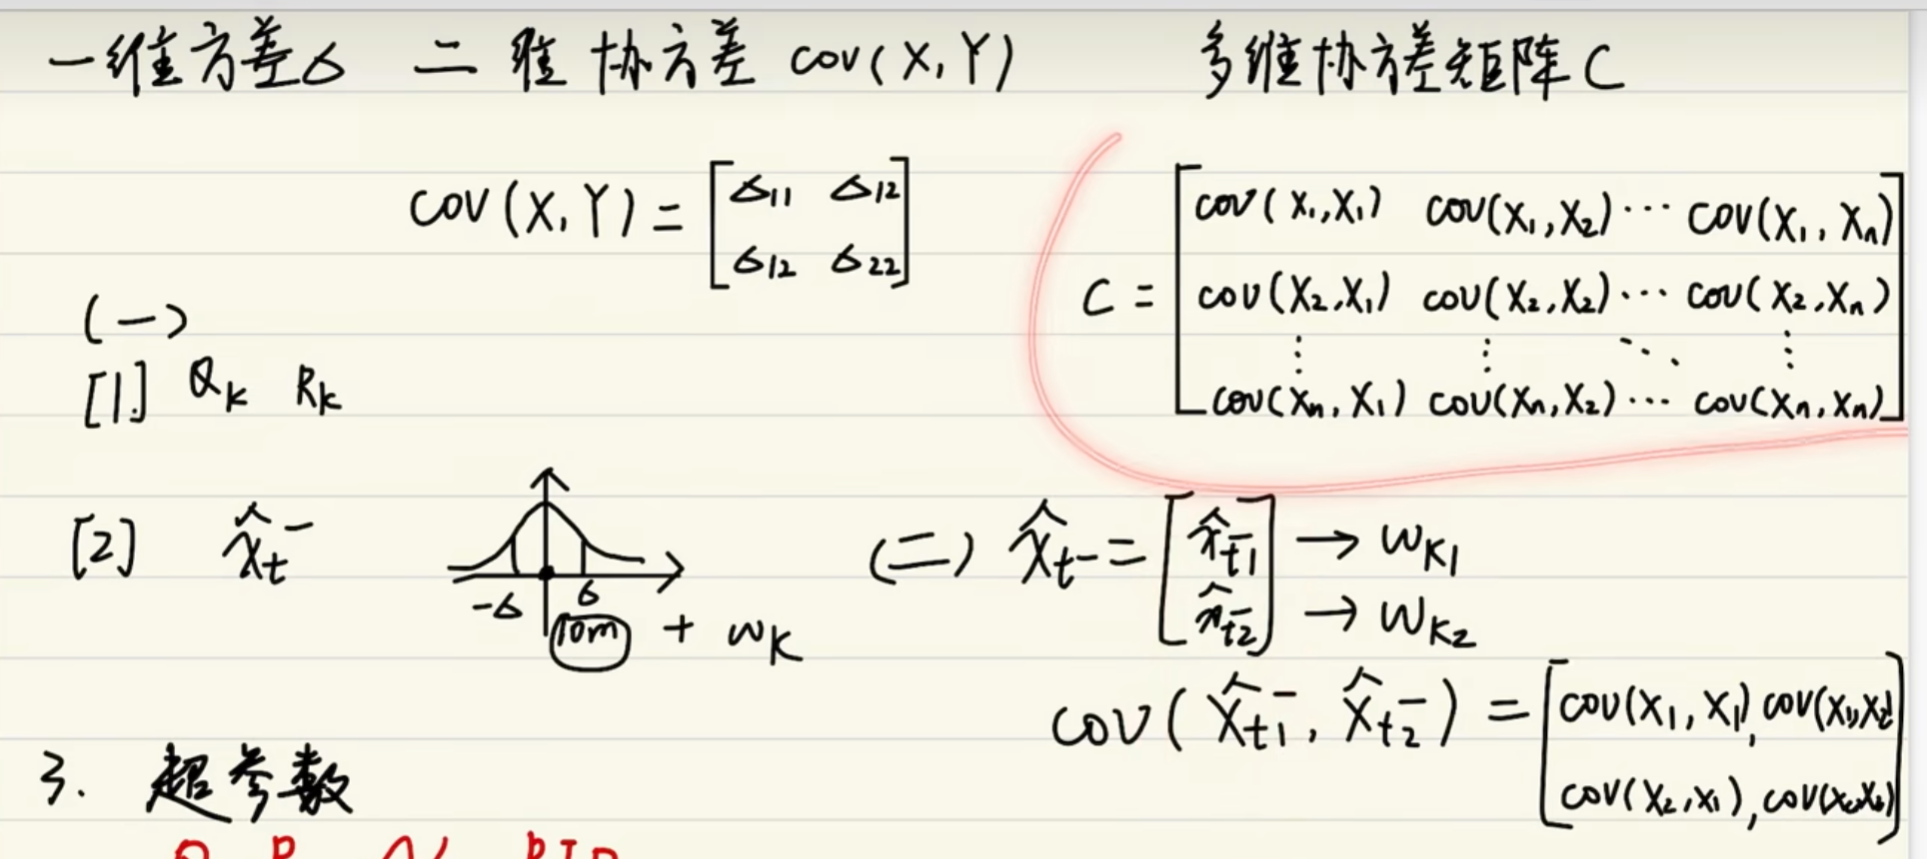 一维方差σ 二维协方差 cov(X,Y) 多维协方差矩阵C
cov(X,Y) = [σ11 σ12
σ12 σ22]
C = [cov(x1,x1) cov(x1,x2) ⋯ cov(x1,xn)
cov(x2,x1) cov(x2,x2) ⋯ cov(x2,xn)
⋮ ⋮ ⋱ ⋮
cov(xn,x1) cov(xn,x2) ⋯ cov(xn,xn)]
(一)
[1] Qk Rk
[2] x̂t⁻
-σ σ
10m + wk
(二) x̂t⁻ = [x̂t1⁻ → wk1
x̂t2⁻] → wk2
cov(x̂t1⁻, x̂t2⁻) = [cov(x1,x1), cov(x1,x2)
cov(x2,x1), cov(x2,x2)]
3. 超参数
Q R PID